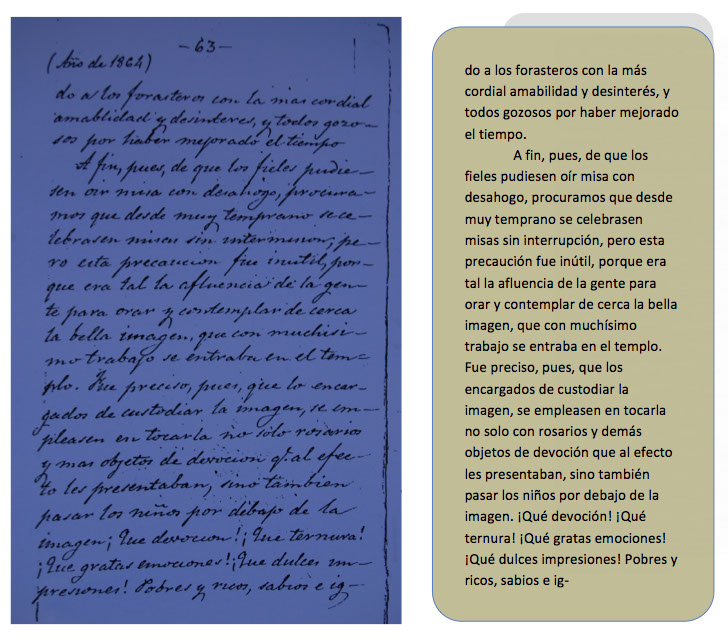 —63—
(Año de 1864)
do a los forasteros con la mas cordial
amablidad y desinteres, y todos gozo-
sos por haber mejorado el tiempo
A fin, pues, de que los fieles pudie-
sen oir misa con desahogo, procura-
mos que desde muy temprano se ce-
lebrasen misas sin intermision, pe-
ro esta precaucion fue inutil, por-
que era tal la afluencia de la gen-
te para orar y contemplar de cerca
la bella imagen, que con muchisi-
mo trabajo se entraba en el tem-
plo. Fue preciso, pues, que lo encar-
gados de custodiar la imagen, se em-
pleasen en tocarla no solo rosarios
y mas objetos de devocion q.e al efec-
to les presentaban; sino tambien
pasar los niños por debajo de la
imagen; Que devocion! ¡Que ternura!
¡Que gratas emociones! ¡Que dulces im-
presiones! Pobres y ricos, sabios e ig-
do a los forasteros con la más
cordial amabilidad y desinterés, y
todos gozosos por haber mejorado
el tiempo.
A fin, pues, de que los
fieles pudiesen oír misa con
desahogo, procuramos que desde
muy temprano se celebrasen
misas sin interrupción, pero esta
precaución fue inútil, porque era
tal la afluencia de la gente para
orar y contemplar de cerca la bella
imagen, que con muchísimo
trabajo se entraba en el templo.
Fue preciso, pues, que los
encargados de custodiar la
imagen, se empleasen en tocarla
no solo con rosarios y demás
objetos de devoción que al efecto
les presentaban, sino también
pasar los niños por debajo de la
imagen. ¡Qué devoción! ¡Qué
ternura! ¡Qué gratas emociones!
¡Qué dulces impresiones! Pobres y
ricos, sabios e ig-